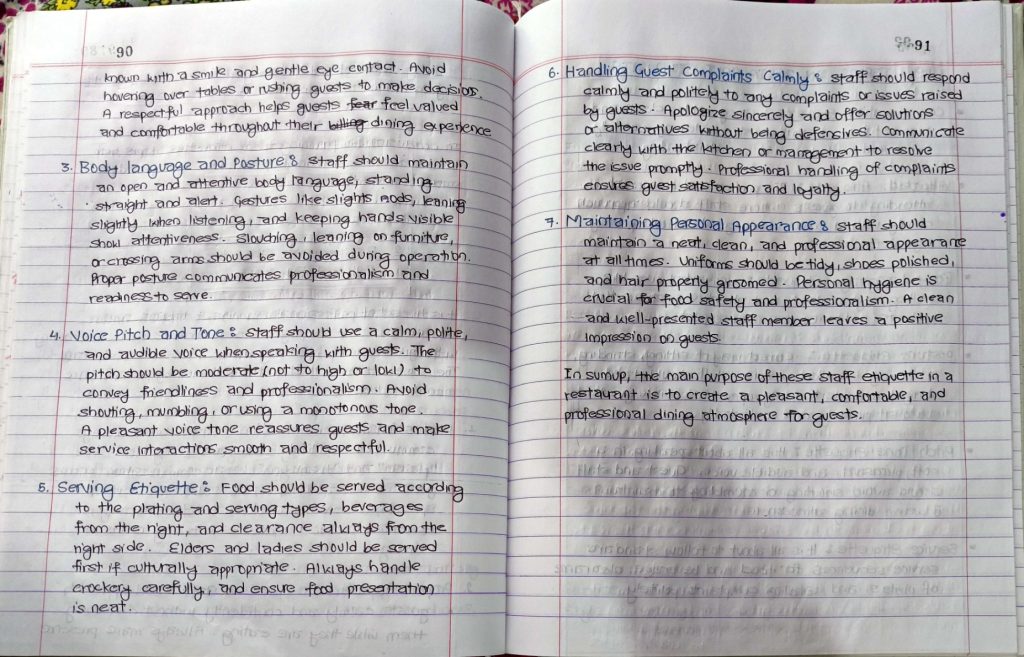 90
known with a smile and gentle eye contact. Avoid
hovering over tables or rushing guests to make decisions.
A respectful approach helps guests fear feel valued
and comfortable throughout their billing dining experience
3. Body language and Posture : Staff should maintain
an open and attentive body language, standing
straight and alert. Gestures like slights nods, leaning
slightly when listening, and keeping hands visible
show attentiveness. Slouching, leaning on furniture,
or crossing arms should be avoided during operation.
Proper posture communicates professionalism and
readiness to serve.
4. Voice Pitch and Tone : Staff should use a calm, polite,
and audible voice when speaking with guests. The
pitch should be moderate (not to high or low) to
convey friendliness and professionalism. Avoid
shouting, mumbling, or using a monotonous tone.
A pleasant voice tone reassures guests and make
service interactions smooth and respectful.
5. Serving Etiquette : Food should be served according
to the plating and serving types, beverages
from the right, and clearance always from the
right side. Elders and ladies should be served
first if culturally appropriate. Always handle
crockery carefully, and ensure food presentation
is neat.
91
6. Handling Guest Complaints Calmly : Staff should respond
calmly and politely to any complaints or issues raised
by guests. Apologize sincerely and offer solutions
or alternatives without being defensives. Communicate
clearly with the kitchen or management to resolve
the issue promptly. Professional handling of complaints
ensures guest satisfaction and loyalty.
7. Maintaining Personal Appearance : Staff should
maintain a neat, clean, and professional appearane
at all times. Uniforms should be tidy, shoes polished,
and hair properly groomed. Personal hygiene is
crucial for food safety and professionalism. A clean
and well-presented staff member leaves a positive
impression on guests.
In sumup, the main purpose of these staff etiquette in a
restaurant is to create a pleasant, comfortable, and
professional dining atmosphere for guests.